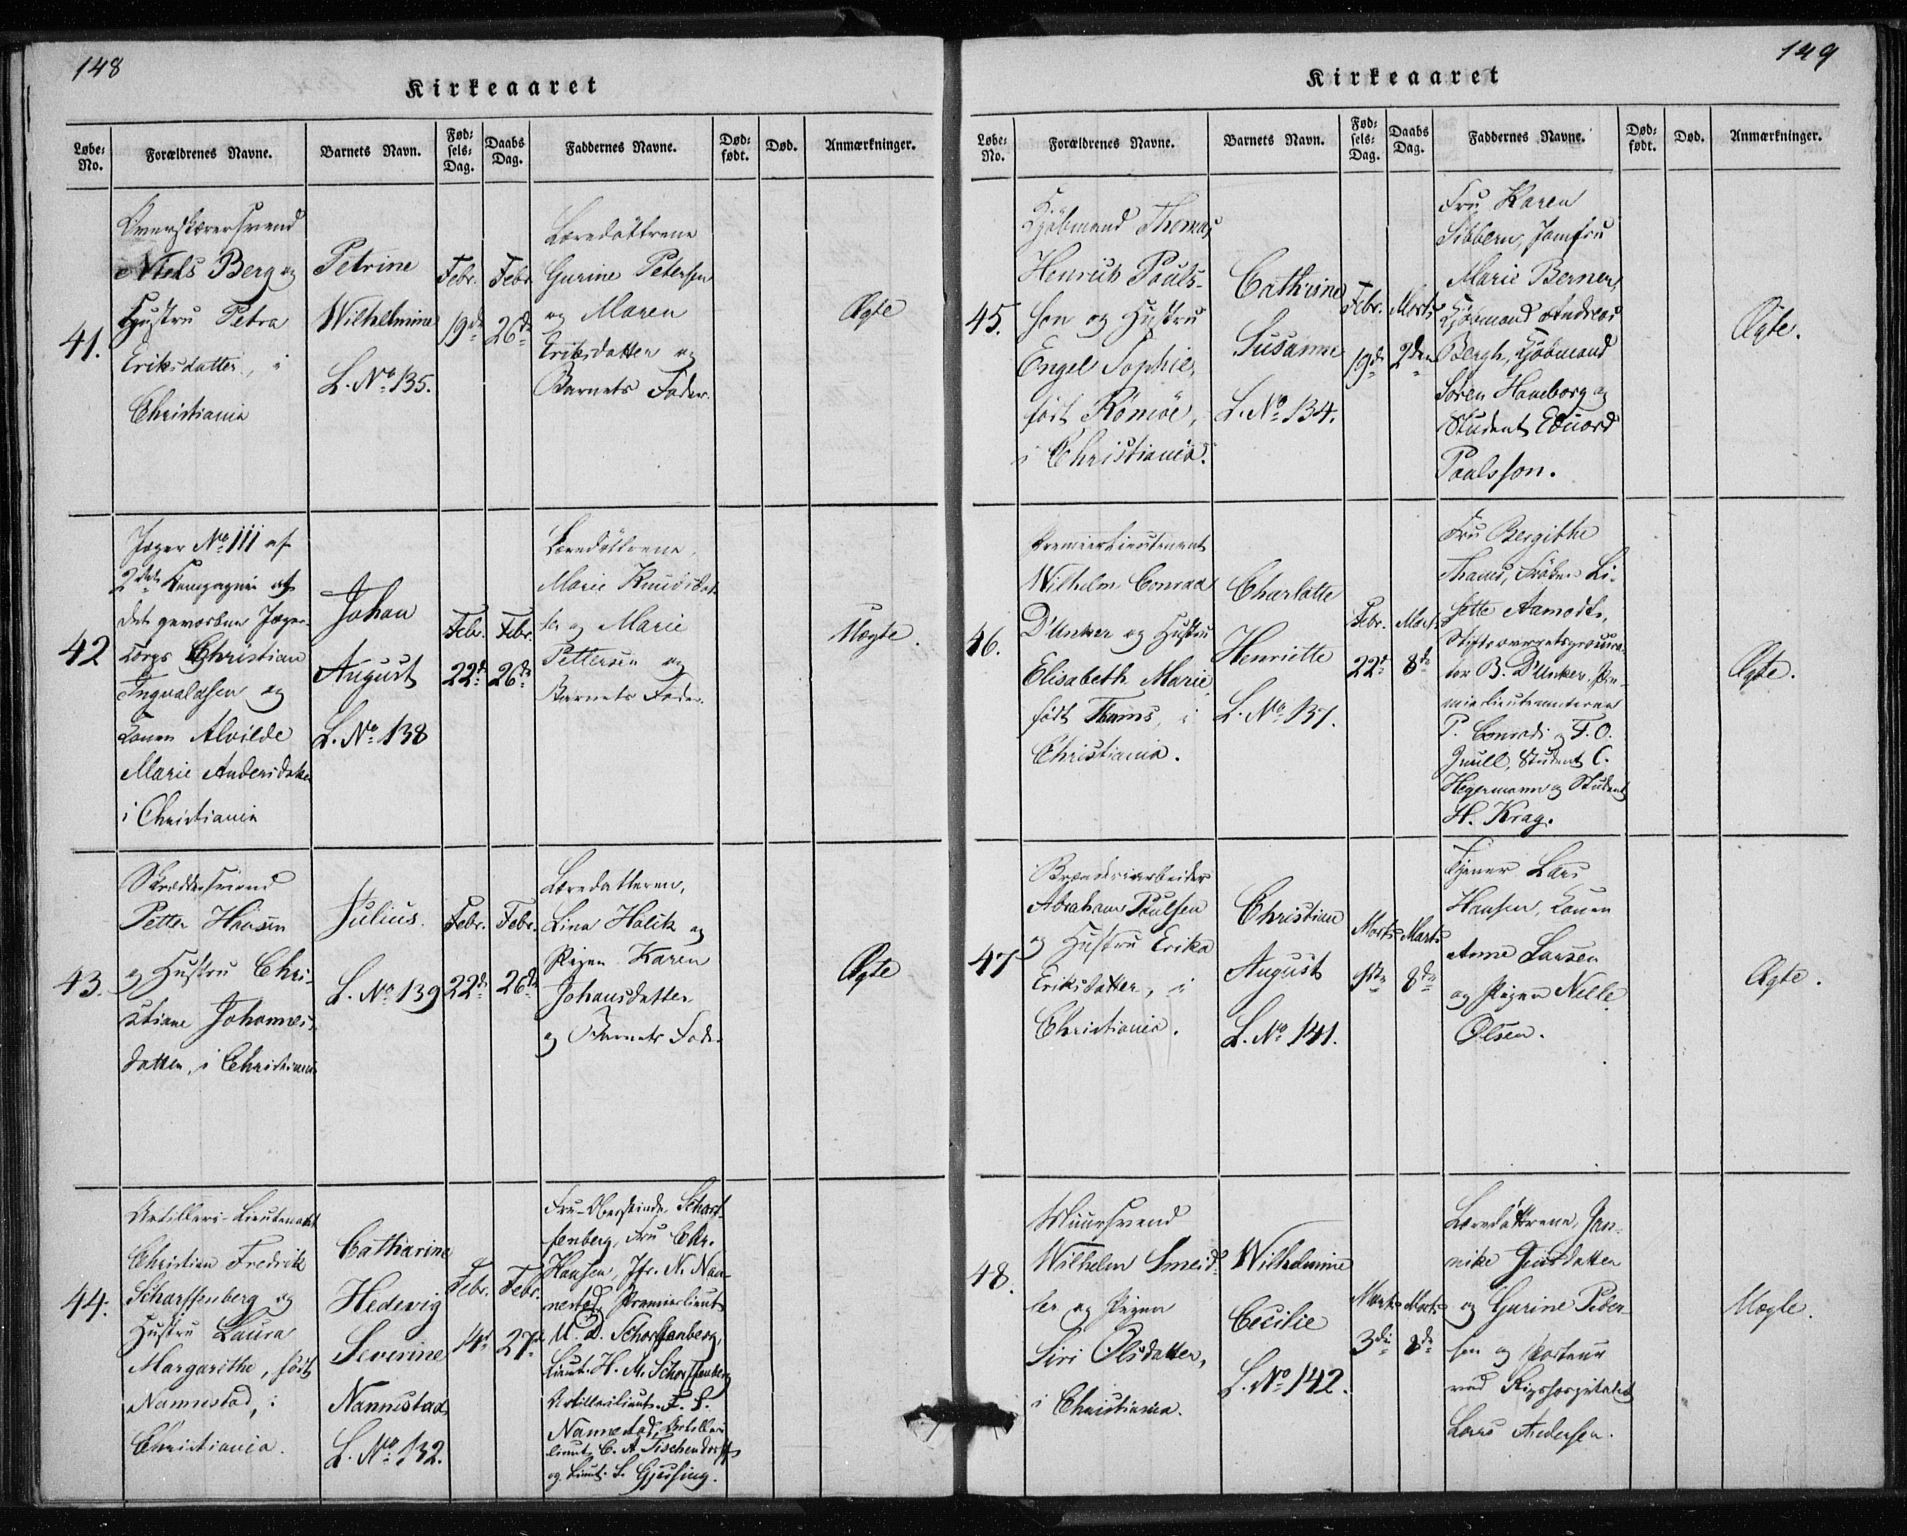 148
Kirkeaaret
Løbe-No.
Forældrenes Navne.
Barnets Navn.
Fødsels-Dag.
Daabs Dag.
Faddernes Navne.
Død-født.
Død.
Anmærkninger.
41.
Niels Berg og
Hustru Petra
Eriksdatter, i
Christiania
Petrine
Wilhelmine
L. No 135.
Febr.
19de
Febr.
26de
Læredøttrene
Gurine Petersen
og Maren
Eriksdatter og
Barnets Fader.
Ægte
42
Jæger No 111 af
2det Kompagnie af
det gevorbne Jæger-
Korps Christian
Ingvaldsen og
Konen Alvilde
Marie Andersdatter
i Christiania
Johan
August
L. No 138
Febr.
22de
Febr.
26de
Læredøttrene
Marie Knudsdat-
ter og Marie
Pettersen og
Barnets Fader.
Uægte.
43.
Skrædersvend
Petter Hansen
og Hustru Chri-
stiane Johannes-
datter, i Christiania
Julius.
L. No 139
Febr.
22de
Febr.
26de
Læredatteren,
Lina Holik og
Pigen Karen
Johansdatter
og Barnets Fader
Ægte
44.
Artilleri-Lieutenant
Christian Fredrik
Scharffenberg og
Hustru Laura
Margarithe, født
Nannestad, i
Christiania.
Catharine
Hedevig
Severine
Nannestad
L. No 132.
Febr.
14de
Febr.
27de
Fru Oberstinde Scharf-
fenberg, Fru Chr.
Hansen, Jfr. N. Nan-
nestad, Premierlieut.
U. D. Scharffenberg,
Lieut. H. M. Scharffenberg
Artillerilieut. F. F.
Nannestad, Artilleri
lieut. C. A. Tischendorff
og Lieut. L. Gjersing.
149
Kirkeaaret
Løbe-No.
Forældrenes Navne.
Barnets Navn.
Fødsels-Dag.
Daabs Dag.
Faddernes Navne.
Død-født.
Død.
Anmærkninger.
45.
Kjøbmand Thomas
Henrich Pauls-
son og Hustru
Engel Sophie,
født Römöe,
i Christiania.
Cathrine
Susanne
L. No 134.
Febr.
19de
Marts
2den
Fru Karen
Sibbern, Jomfru
Marie Berner,
Kjøbmand Andreas
Bergh, Kjøbmand
Søren Haneborg og
Student Eduard
Paulsson.
Ægte.
46.
Premierlieutenant
Wilhelm Conrad
D'Unker og Hustru
Elisabeth Marie
født Thams, i
Christiania.
Charlotte
Henriette
L. No 137.
Febr.
22de
Marts
8de
Fru Bergithe
Thams, Frøken Li-
sette Aamodt,
Stiftsoverretsprocura-
tor B. D'Unker, Pre-
mierlieutenanterne
P. Conradi og F. O.
Quill, Student C.
Hegermann og Student
H. Krag.
Ægte.
47
Brænderiarbeider
Abraham Paulsen
og Hustru Erika
Eriksdatter, i
Christiania.
Christian
August
L. No 141.
Marts
1ste
Marts
8de
Tjener Lars
Hansen, Konen
Anne Larsen
og Pigen Nelle
Olsen.
Ægte.
48.
Muursvend
Wilhelm Smeid-
ler og Pigen
Siri Olsdatter,
i Christiania.
Wilhelmine
Cecilie
L. No 142.
Marts
3die
Marts
8de
Læredøttrene, Jan-
nike Jensdatter
og Gurine Peder-
sen og Portner
ved Rigshospitalet
Lars Andersen.
Uægte.